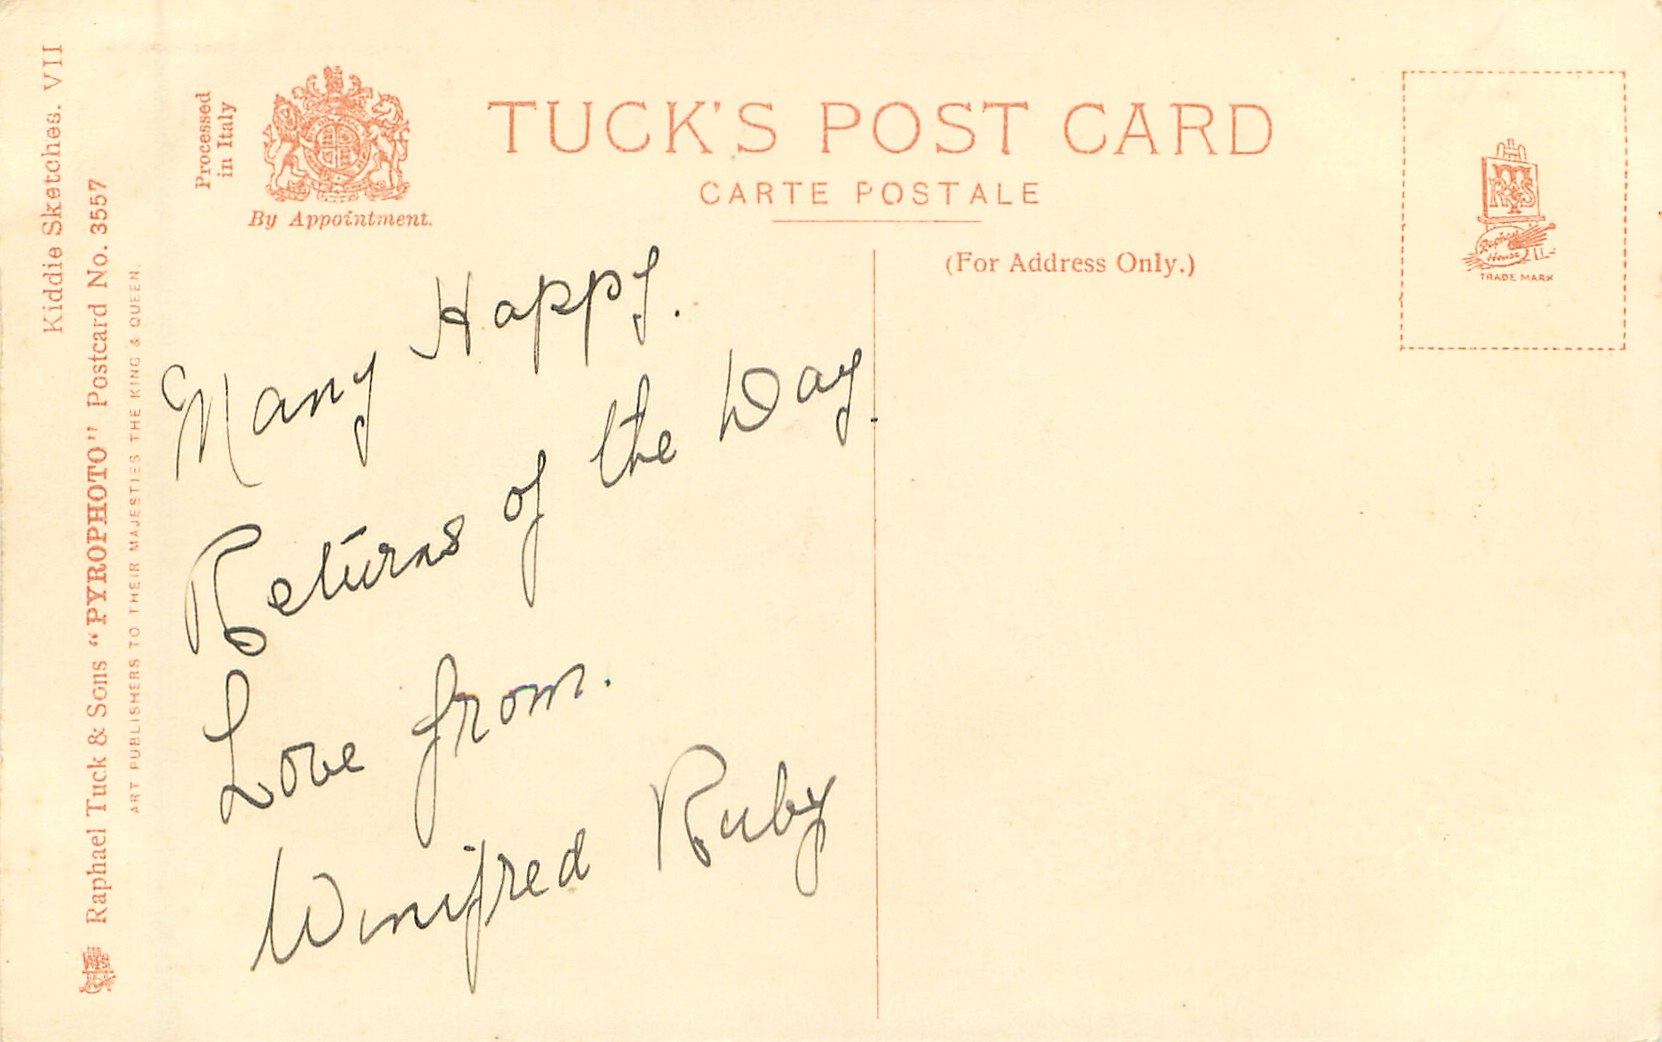 Kiddie Sketches. VII
Raphael Tuck & Sons "PYROPHOTO" Postcard No. 3557
ART PUBLISHERS TO THEIR MAJESTIES THE KING & QUEEN.
Processed
in Italy
By Appointment.
TUCK'S POST CARD
CARTE POSTALE
(For Address Only.)
Raphael
House
TRADE MARK
Many Happy.
Returns of the Day.
Love from.
Winifred Ruby